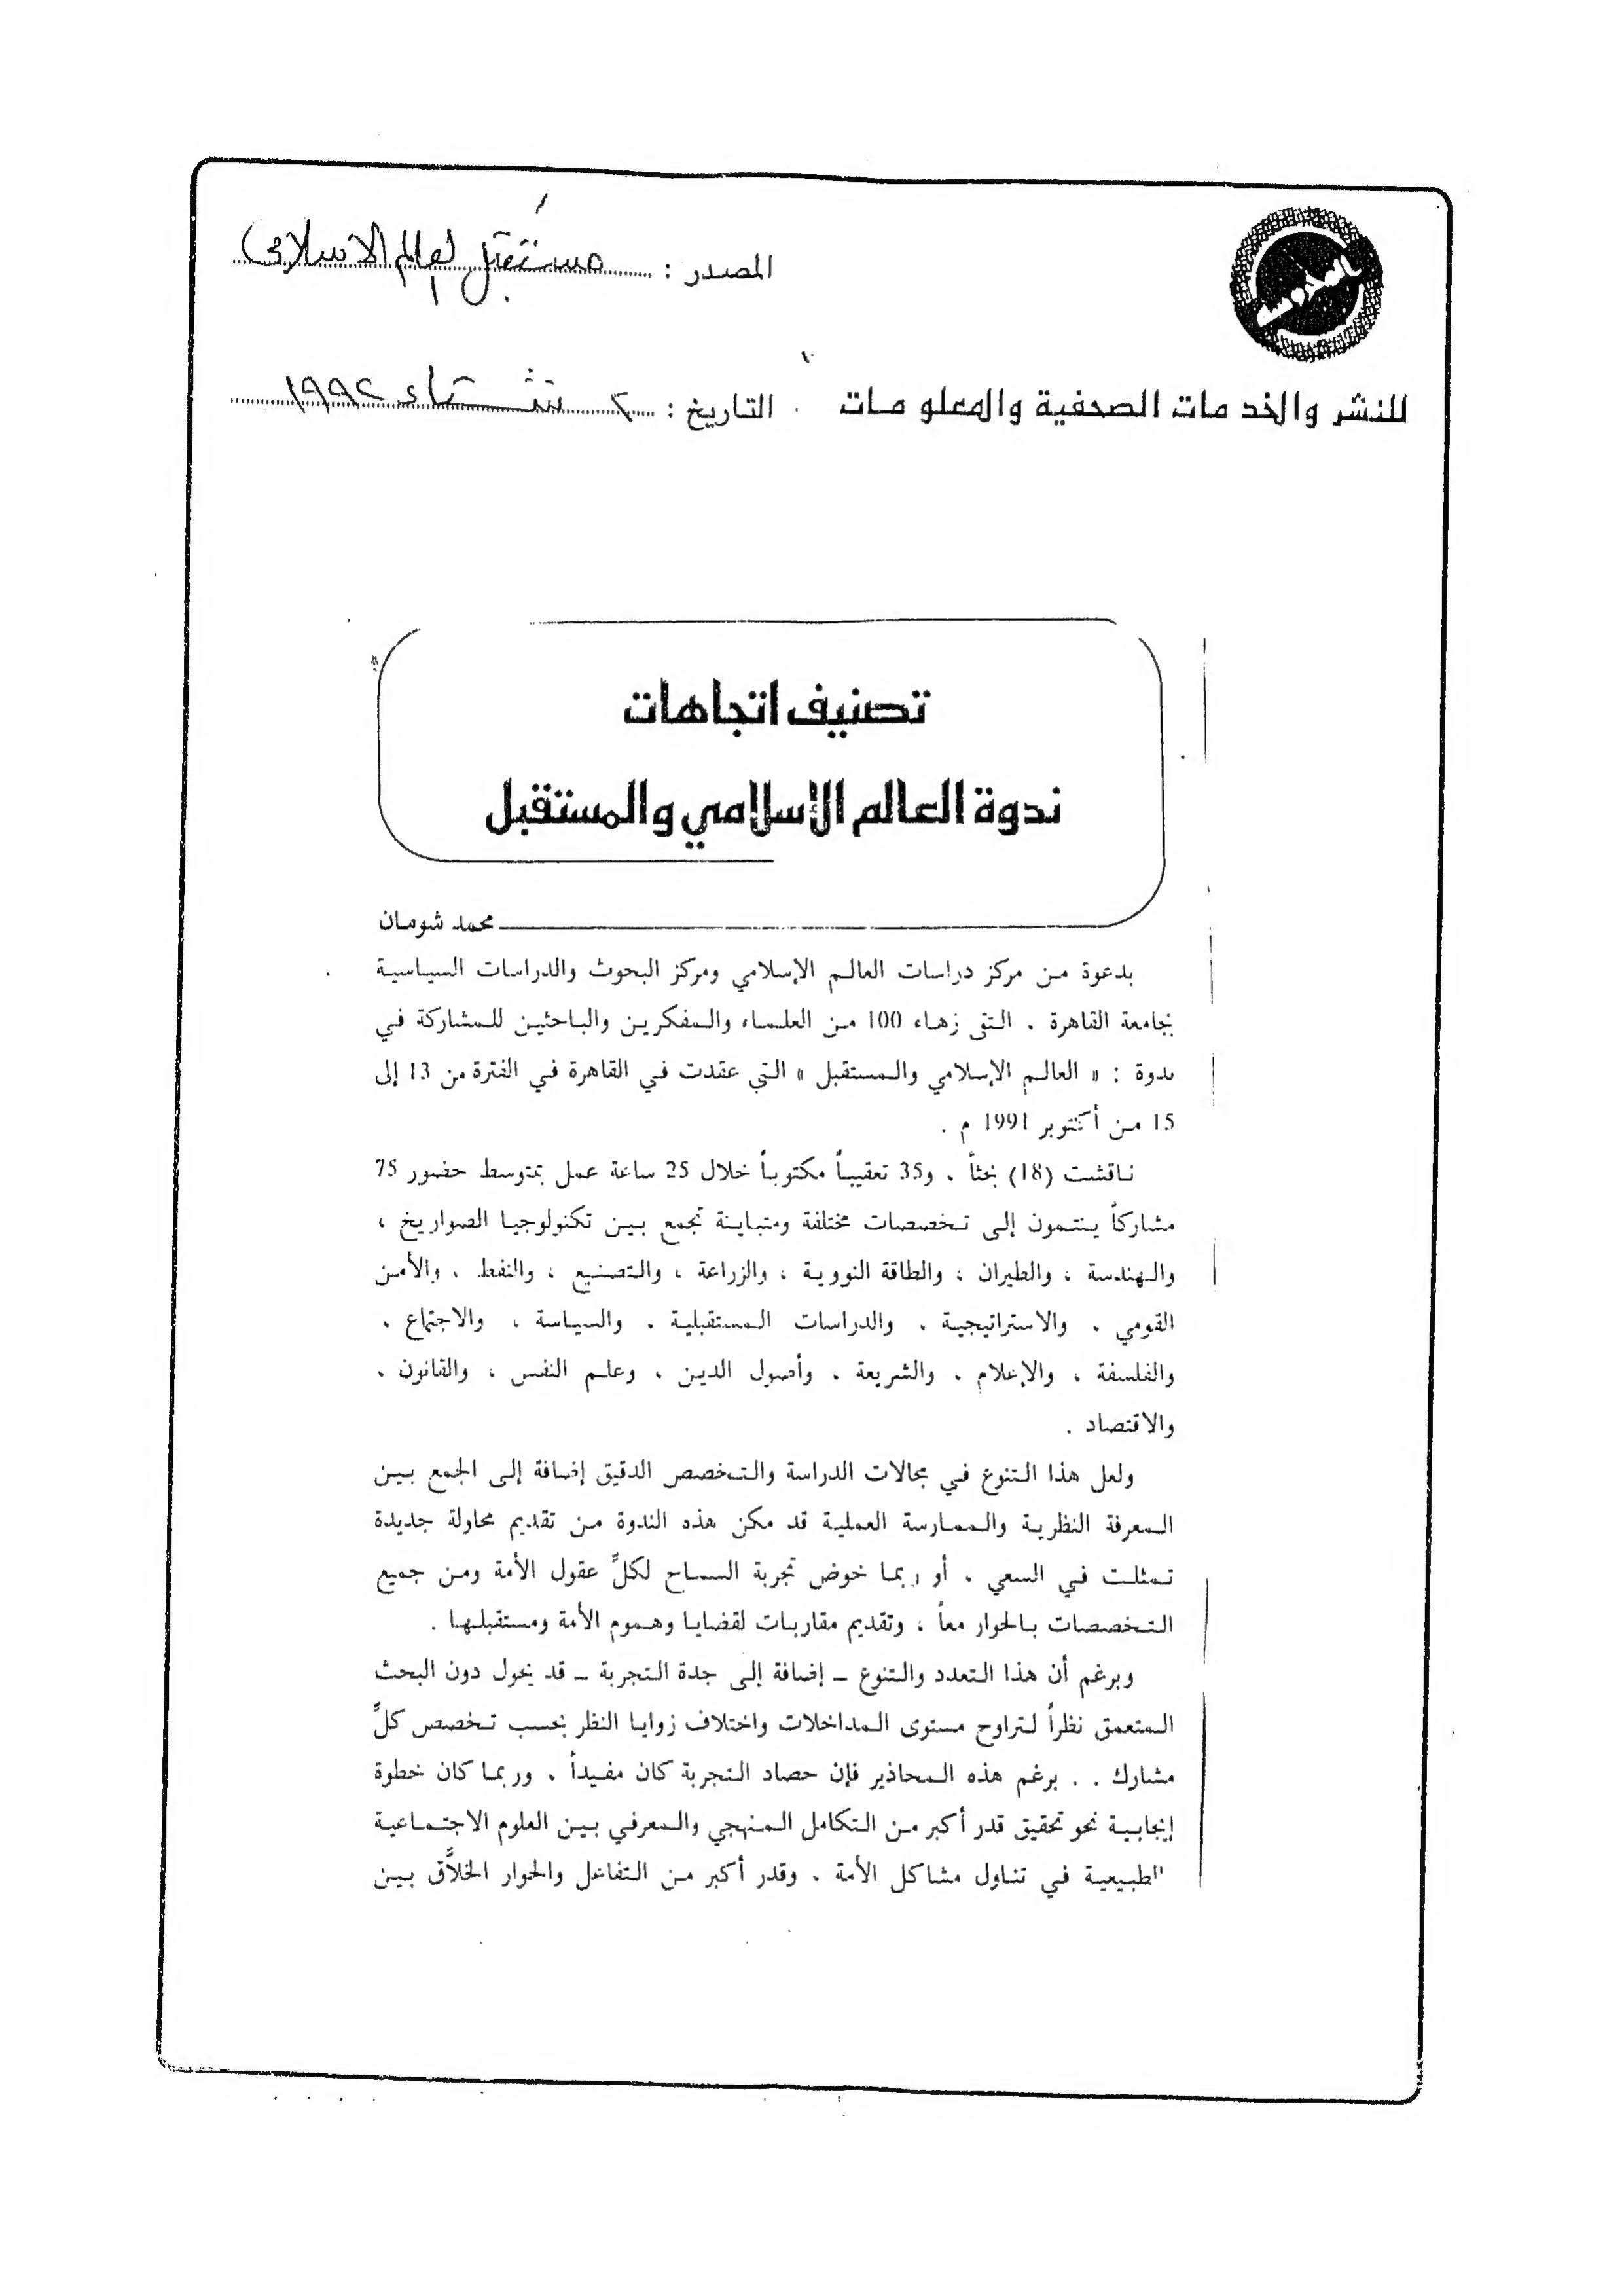 المصدر : مستقبل العالم الاسلامى
للنشر والخدمات الصحفية والمعلومات
التاريخ : شتاء ١٩٩٢
تصنيف اتجاهات
ندوة العالم الإسلامي والمستقبل
محمد شومان
بدعوة من مركز دراسات العالم الإسلامي ومركز البحوث والدراسات السياسية
بجامعة القاهرة ، التقى زهاء 100 من العلماء والمفكرين والباحثين للمشاركة في
ندوة : « العالم الإسلامي والمستقبل » التي عقدت في القاهرة في الفترة من 13 إلى
15 من أكتوبر 1991 م .
ناقشت (18) بحثاً ، و35 تعقيباً مكتوباً خلال 25 ساعة عمل بمتوسط حضور 75
مشاركاً ينتمون إلى تخصصات مختلفة ومتباينة تجمع بين تكنولوجيا الصواريخ ،
والهندسة ، والطيران ، والطاقة النووية ، والزراعة ، والتصنيع ، والنفط ، والأمن
القومي ، والاستراتيجية ، والدراسات المستقبلية ، والسياسة ، والاجتماع ،
والفلسفة ، والإعلام ، والشريعة ، وأصول الدين ، وعلم النفس ، والقانون ،
والاقتصاد .
ولعل هذا التنوع في مجالات الدراسة والتخصص الدقيق إضافة إلى الجمع بين
المعرفة النظرية والممارسة العملية قد مكن هذه الندوة من تقديم محاولة جديدة
تمثلت في السعي ، أو ربما خوض تجربة السماح لكلِّ عقول الأمة ومن جميع
التخصصات بالحوار معاً ، وتقديم مقاربات لقضايا وهموم الأمة ومستقبلها .
وبرغم أن هذا التعدد والتنوع ـ إضافة إلى جدة التجربة ـ قد يحول دون البحث
المتعمق نظراً لتراوح مستوى المداخلات واختلاف زوايا النظر بحسب تخصص كلِّ
مشارك . . برغم هذه المحاذير فإن حصاد التجربة كان مفيداً ، وربما كان خطوة
إيجابية نحو تحقيق قدر أكبر من التكامل المنهجي والمعرفي بين العلوم الاجتماعية
الطبيعية في تناول مشاكل الأمة ، وقدر أكبر من التفاعل والحوار الخلاَّق بين